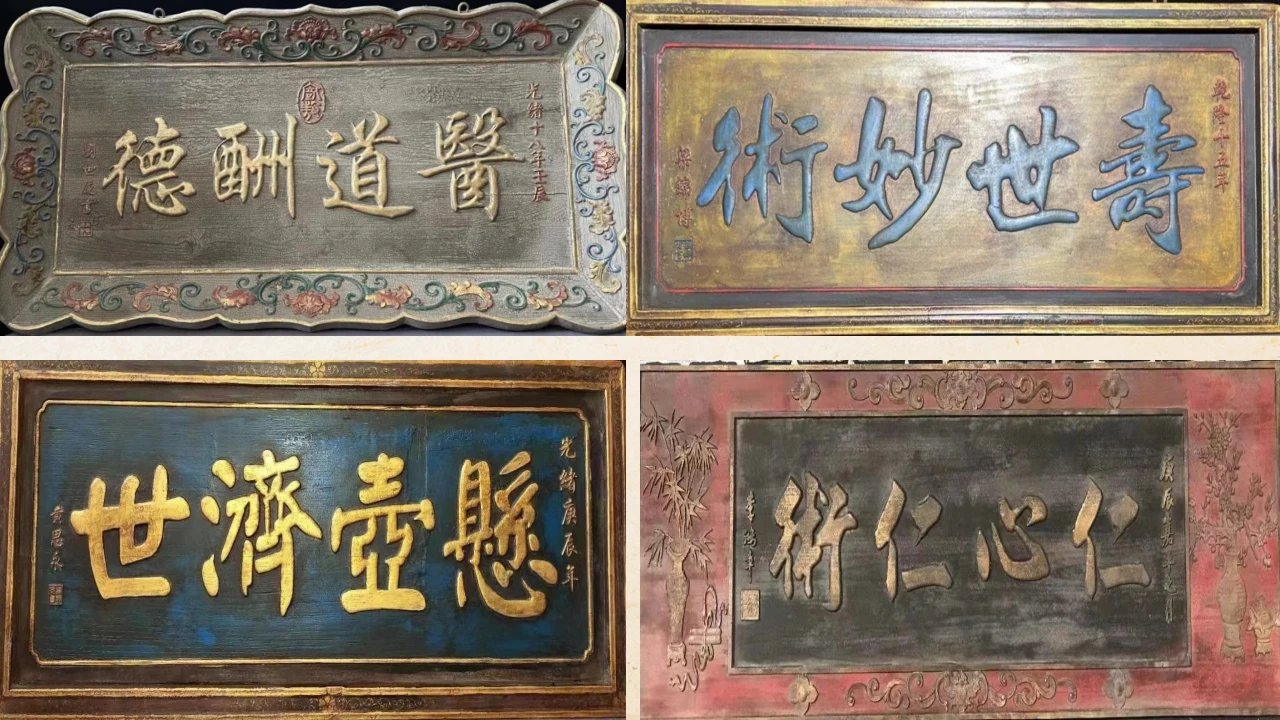 光緒十八年壬辰
醫道酬德
乾隆十五年
壽世妙術
光緒庚辰年
懸壺濟世
黄思永
仁心仁術